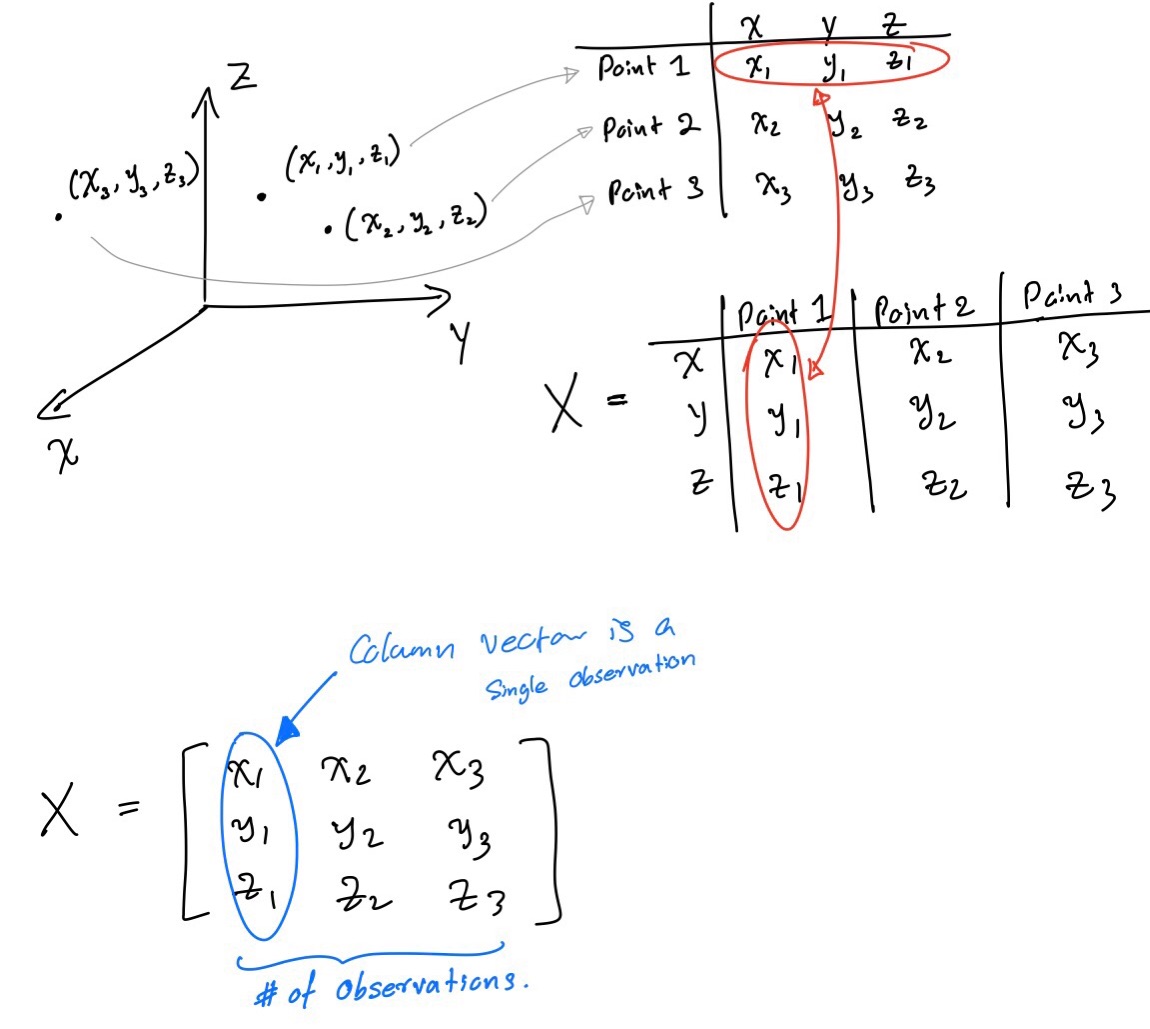 Z
(x₃, y₃, z₃)
(x₁, y₁, z₁)
(x₂, y₂, z₂)
Y
X
x y z
Point 1 x₁ y₁ z₁
Point 2 x₂ y₂ z₂
Point 3 x₃ y₃ z₃
Point 1 Point 2 Point 3
X =
x x₁ x₂ x₃
y y₁ y₂ y₃
z z₁ z₂ z₃
Column vector is a
single observation
X =
x₁ x₂ x₃
y₁ y₂ y₃
z₁ z₂ z₃
# of observations.